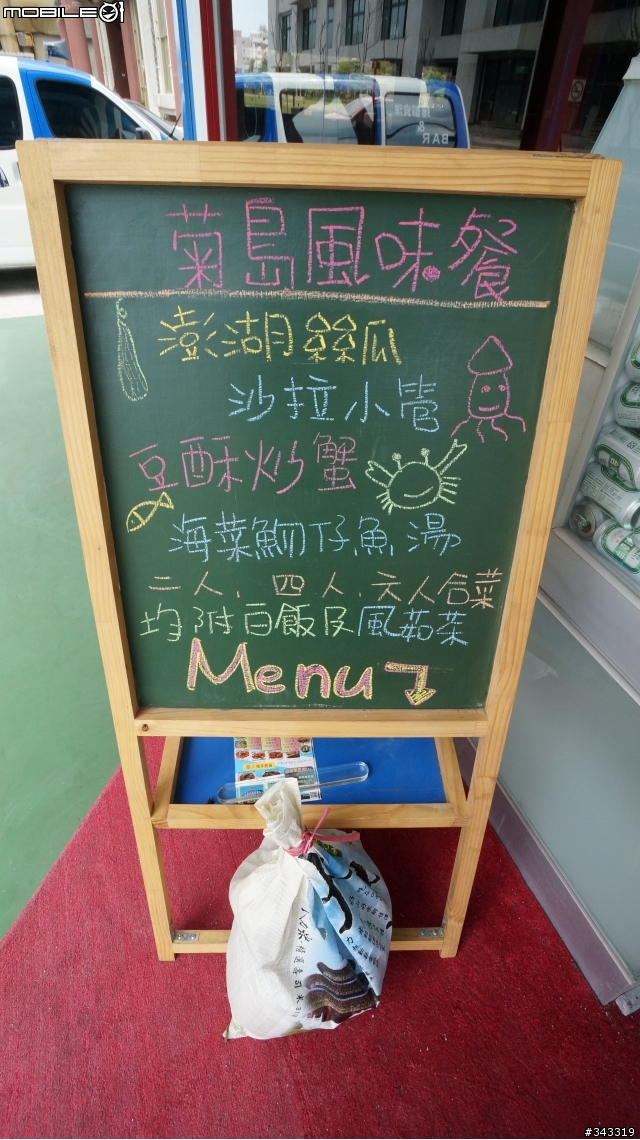 MOBILE01
& 
BAR
菊島風味餐
澎湖絲瓜
沙拉小卷
豆酥炒蟹
海菜魩仔魚湯
二人、四人、六人合菜
均附白飯及風茹茶
Menu
#343319